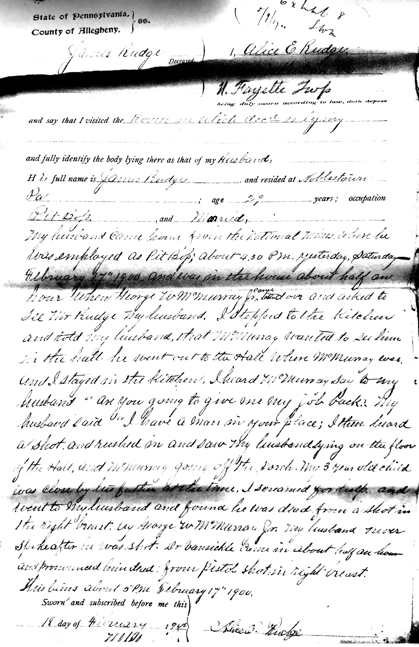 State of Pennsylvania, } ss.
County of Allegheny. }
James Rudge Deceased I, Alice E Rudge
N. Fayette Twp
being duly sworn according to law, doth depose
and say that I visited the house in which dec'd is lying
and fully identify the body lying there as that of my Husband,
His full name is James Rudge and resided at Noblestown
Pa ; age 29 years; occupation
Pit Boss, and Married,
My husband came home from the National mines where he
was employed as Pit Boss, about 4.30 P.M. yesterday, Saturday
February 17th 1900, and was in the house about half an
hour when George W McMurray Jr. came over and asked to
see Mr Rudge my husband. I stepped to the kitchen
and told my husband, that McMurray wanted to see him
in the hall. he went out to the Hall where McMurray was.
and I stayed in the kitchen, I heard McMurray say to my
husband "are you going to give me my job back? my
husband said "I have a man in your place; I then heard
a shot. and rushed in and saw my husband lying on the floor
of the Hall, and McMurray going off the Porch. My 3 year old child
was close by his father at the time. I screamed for help and
went to my husband and found he was dead from a shot in
the right breast. by George W McMurray Jr. My husband never
spoke after he was shot. Dr Vansickle came in about half an hour
and pronounced him dead. from pistol shot in right breast.
This was about 5 P.M. February 17th 1900.
Sworn and subscribed before me this
18 day of February 190
Alice E. Rudge